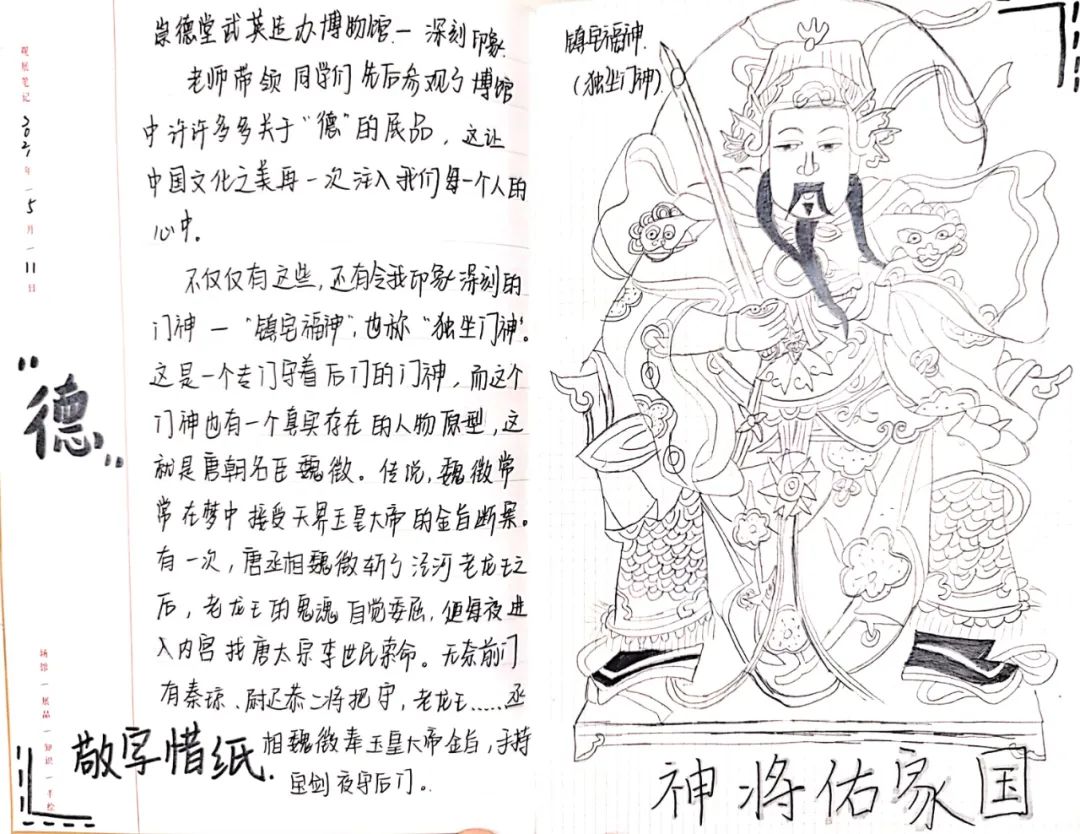 观展笔记 2021年 5月 11日
“德”
场馆 展品 知识 手绘
敬字惜纸.
崇德堂武英造办博物馆一深刻印象
老师带领同学们先后参观了博馆
中许许多多关于“德”的展品，这让
中国文化之美再一次注入我们每一个人的
心中。
不仅仅有这些，还有令我印象深刻的
门神一“镇宅福神”，也称“独坐门神”。
这是一个专门守着后门的门神，而这个
门神也有一个真实存在的人物原型，这
就是唐朝名臣魏微。传说，魏微常
常在梦中接受天界玉皇大帝的金旨断案。
有一次，唐丞相魏微斩了泾河老龙王之
后，老龙王的鬼魂自觉委屈，便每夜进
入内宫找唐太宗李世民索命。无奈前门
有秦琼、尉迟恭二将把守，老龙王……丞
相魏微奉玉皇大帝金旨，手持
宝剑夜守后门。
镇宅福神.
（独坐门神）.
神将佑家国